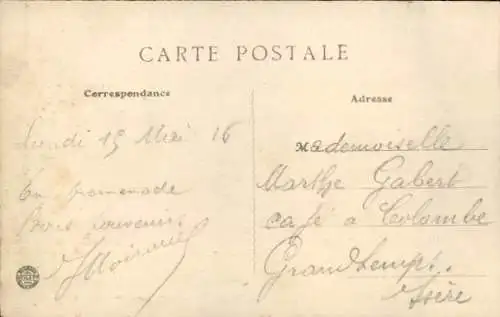 CARTE POSTALE
Correspondance
Adresse
Lundi 15 Mai 16
En promenade
Bons souvenirs
Mademoiselle
Marthe Gabert
café à Colombe
Grand Lemps.
Isère